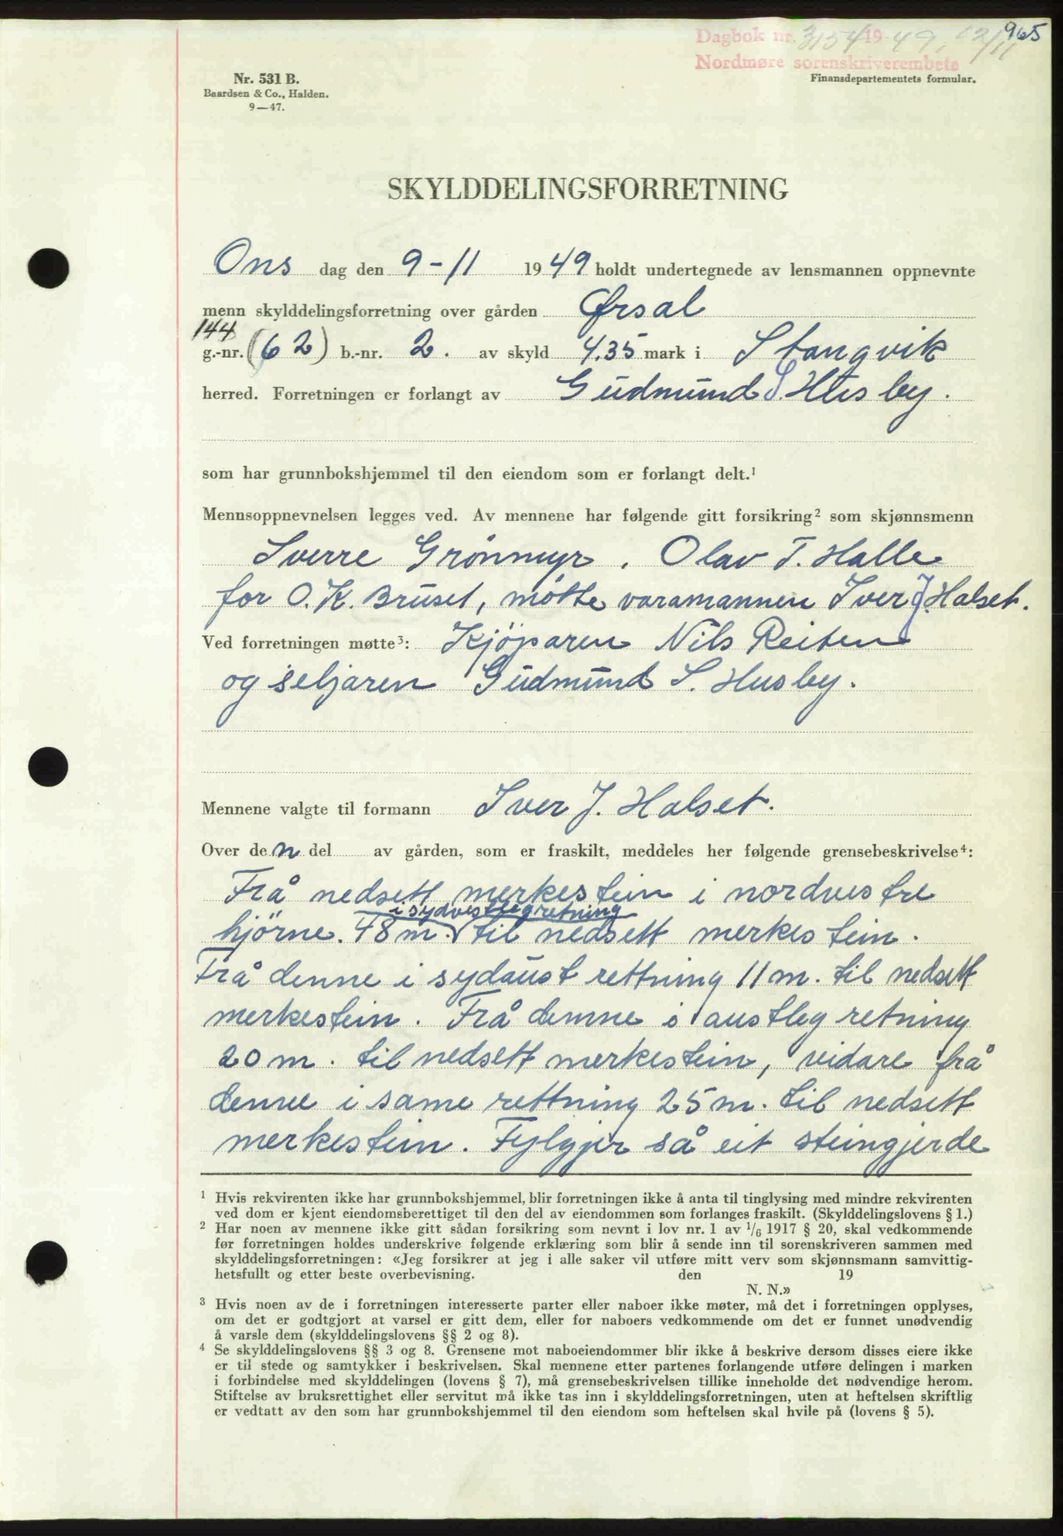 965
Dagbok nr. 3154 19 49, 12/11
Nordmøre sorenskriverembete
Nr. 531 B.
Baardsen & Co., Halden.
9—47.
Finansdepartementets formular.
SKYLDDELINGSFORRETNING
Ons dag den 9-11 1949 holdt undertegnede av lensmannen oppnevnte
menn skylddelingsforretning over gården Ørsal
144
g.-nr. (62) b.-nr. 2. av skyld 4.35 mark i Stangvik
herred. Forretningen er forlangt av Gudmund S. Husby.
som har grunnbokshjemmel til den eiendom som er forlangt delt.¹
Mennsoppnevnelsen legges ved. Av mennene har følgende gitt forsikring² som skjønnsmenn
Sverre Grønmyr, Olav T. Halle
for O.K. Bruset, møtte varamannen Iver J. Halset.
Ved forretningen møtte³: Kjöparen Nils Reiten
og seljaren Gudmund S. Husby.
Mennene valgte til formann Iver J. Halset.
Over den del av gården, som er fraskilt, meddeles her følgende grensebeskrivelse⁴:
Frå nedsett merkestein i nordvestre
i sydvestleg retning
hjørne. 48 m. til nedsett merkestein.
Frå denne i sydaust rettning 11 m. til nedsett
merkestein. Frå denne i austleg retning
20 m. til nedsett merkestein, vidare frå
denne i same rettning 25 m. til nedsett
merkestein. Fylgjer så eit steingjerde
¹ Hvis rekvirenten ikke har grunnbokshjemmel, blir forretningen ikke å anta til tinglysing med mindre rekvirenten
ved dom er kjent eiendomsberettiget til den del av eiendommen som forlanges fraskilt. (Skylddelingslovens § 1.)
² Har noen av mennene ikke gitt sådan forsikring som nevnt i lov nr. 1 av 1/6 1917 § 20, skal vedkommende
før forretningen holdes underskrive følgende erklæring som blir å sende inn til sorenskriveren sammen med
skylddelingsforretningen: «Jeg forsikrer at jeg i alle saker vil utføre mitt verv som skjønnsmann samvittig-
hetsfullt og etter beste overbevisning. den 19
N. N.»
³ Hvis noen av de i forretningen interesserte parter eller naboer ikke møter, må det i forretningen opplyses,
om det er godtgjort at varsel er gitt dem, eller for naboers vedkommende om det er funnet unødvendig
å varsle dem (skylddelingslovens §§ 2 og 8).
⁴ Se skylddelingslovens §§ 3 og 8. Grensene mot naboeiendommer blir ikke å beskrive dersom disses eiere ikke
er til stede og samtykker i beskrivelsen. Skal mennene etter partenes forlangende utføre delingen i marken
i forbindelse med skylddelingen (lovens § 7), må grensebeskrivelsen tillike inneholde det nødvendige herom.
Stiftelse av bruksrettighet eller servitut må ikke tas inn i skylddelingsforretningen, uten at heftelsen skriftlig
er vedtatt av den som har grunnbokshjemmel til den eiendom som heftelsen skal hvile på (lovens § 5).